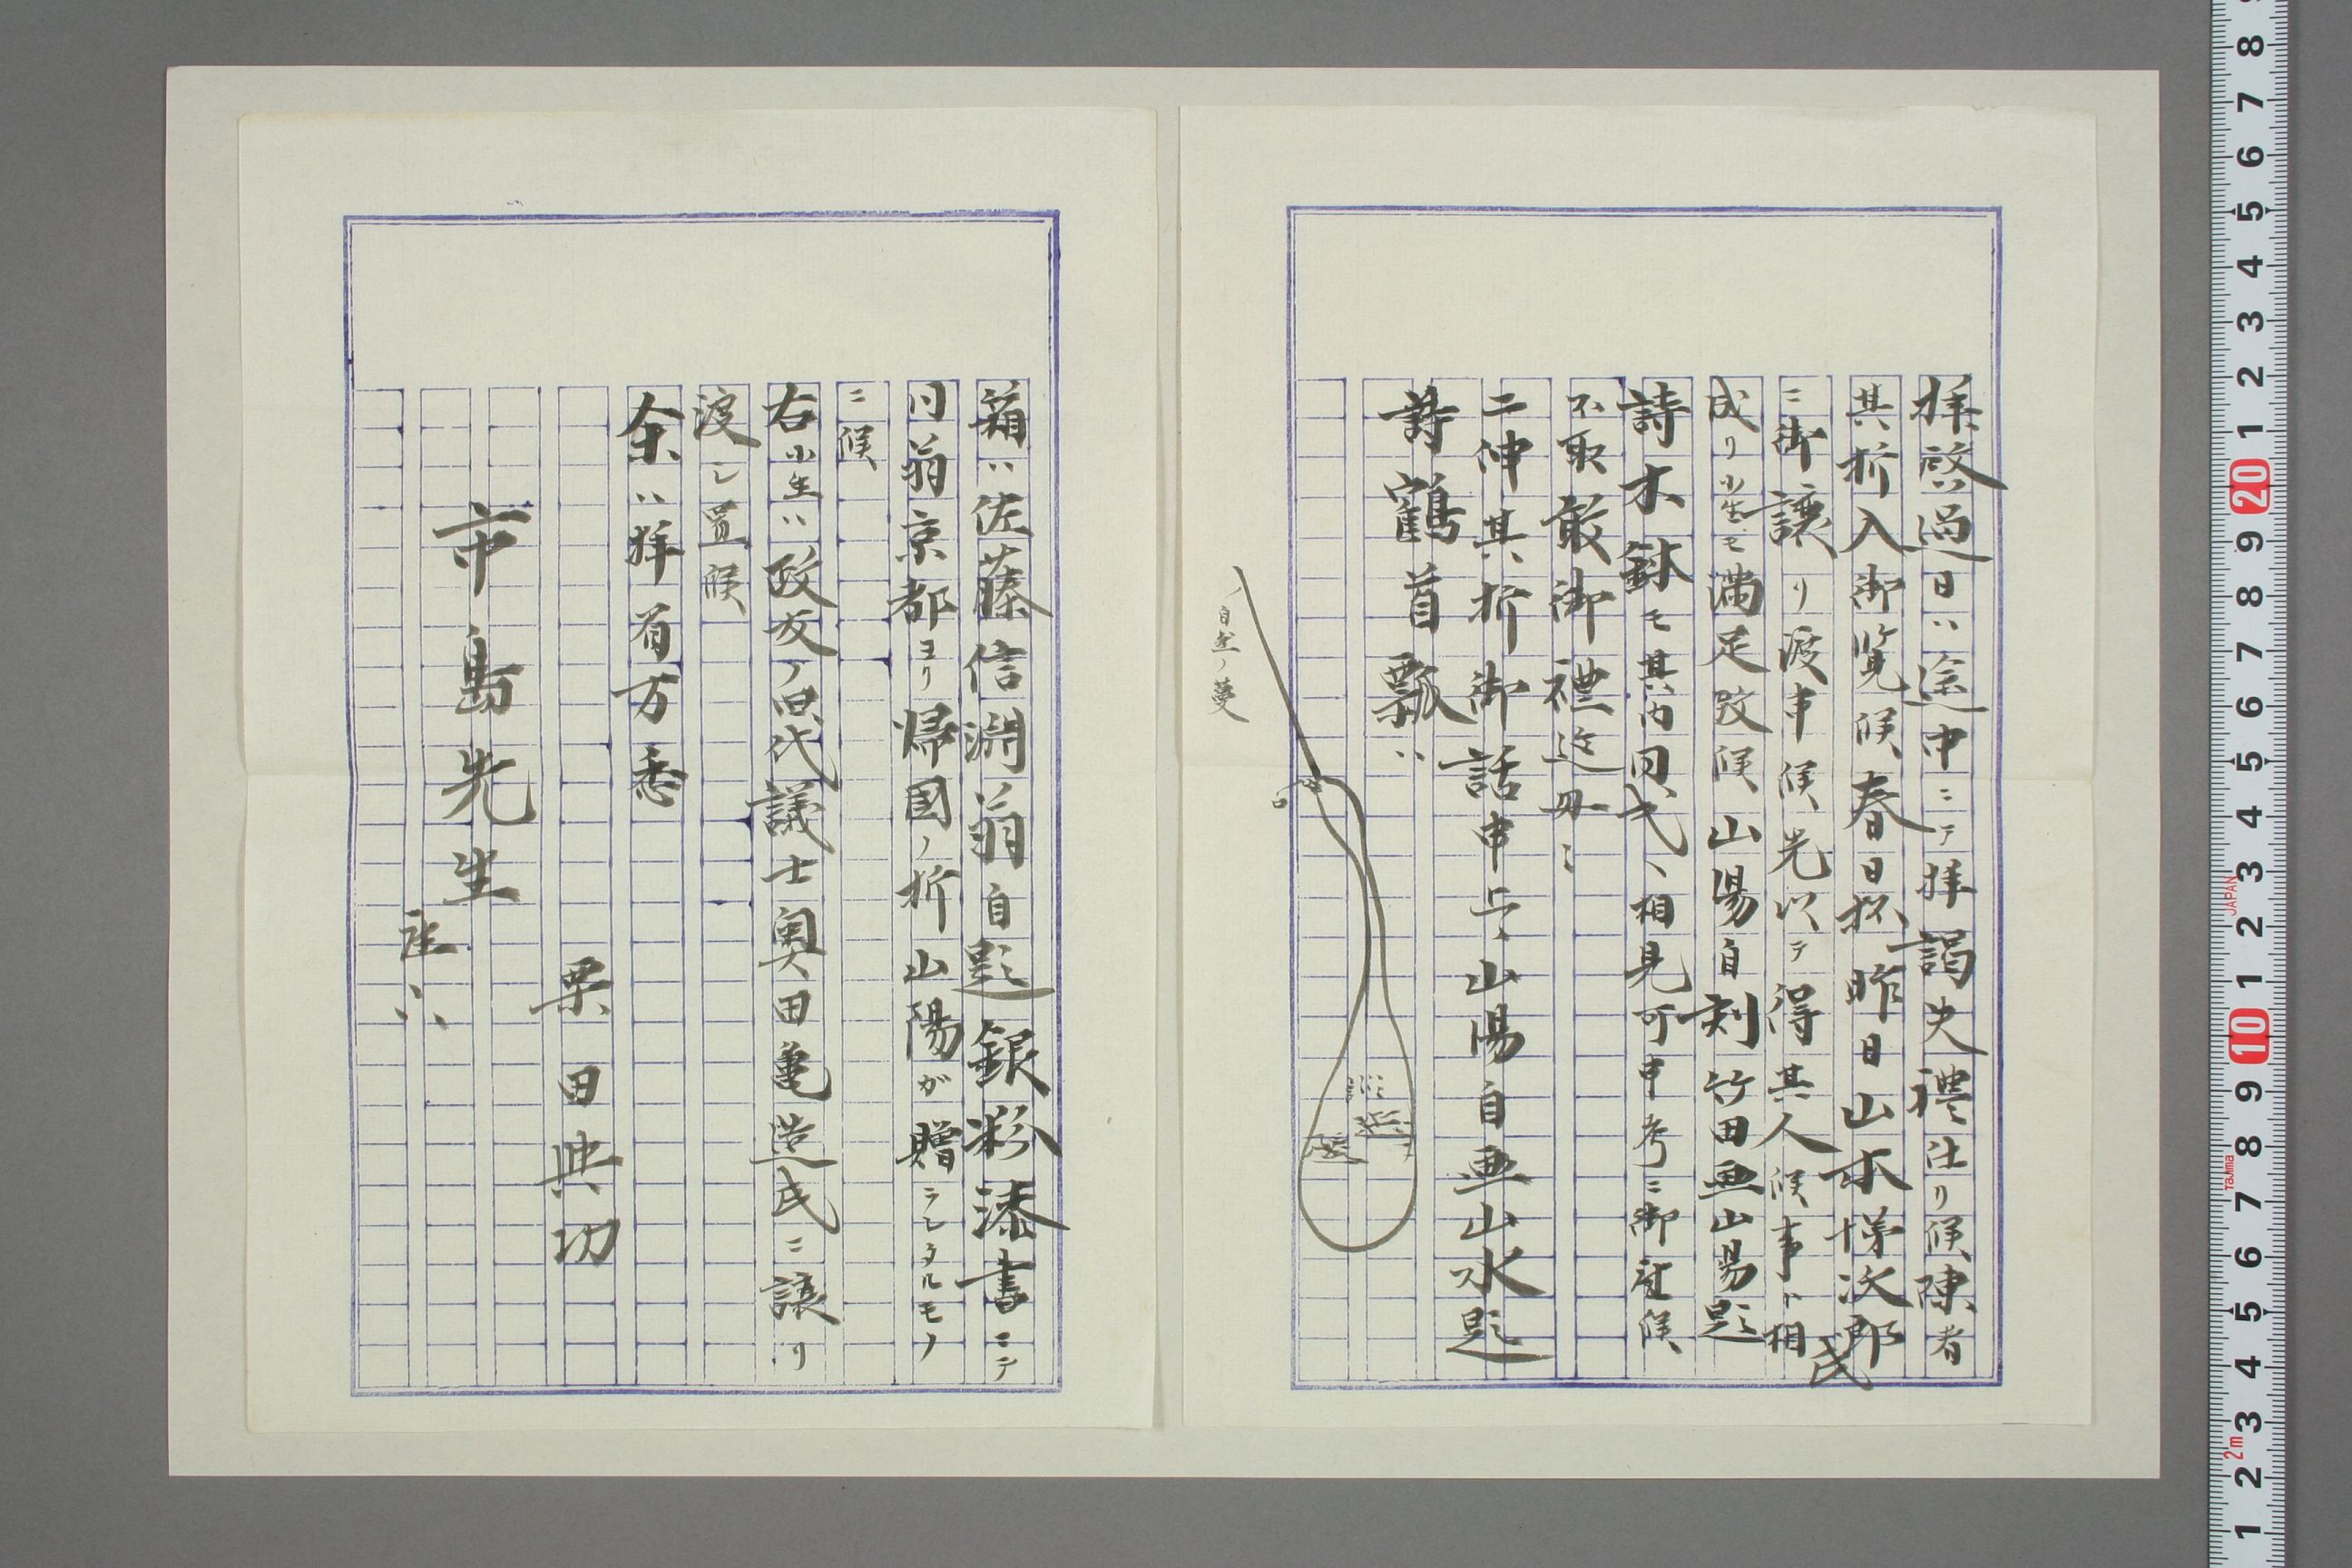 拝啓過日ハ途中ニテ拝謁失禮仕リ候陳者
其折入御覧候春日杯昨日山本悌次郎氏
ニ御譲リ渡申候先以テ得其人候事ト相
成リ小生モ満足致候山陽自刻竹田画山陽題
詩木鉢モ其内同氏ヘ相見可申考ニ御座候
不取敢御禮迄毎々
二伸其折御話申上候山陽自画山水題
詩鶴首瓢ハ
自然ノ蔓
箱ハ佐藤信淵翁自題銀彩漆書ニテ
同翁京都ヨリ帰國ノ折山陽が贈ラレタルモノ
ニ候
右小生ハ政友ノ旧代議士奥田亀造氏ニ譲リ
渡シ置候
余ハ拝眉万悉
栗田典功
市島先生